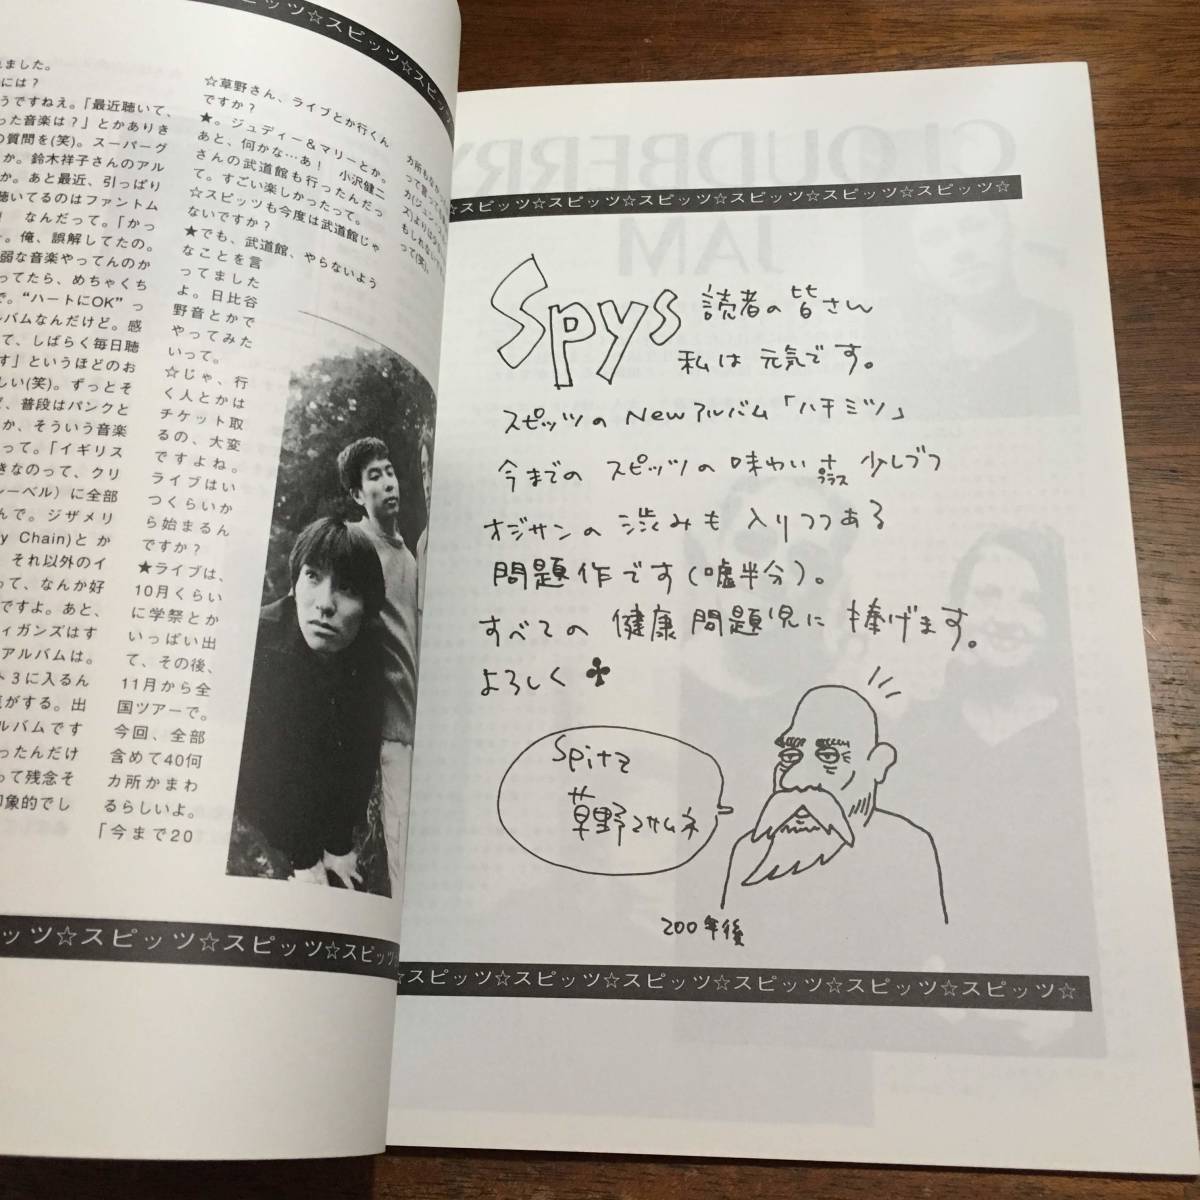 スピッツ☆スピッツ☆スピ
れました。
には？
うですねえ。「最近聴いて、
った音楽は？」とかありき
の質問を(笑)。スーパーグ
か。鈴木祥子さんのアル
か。あと最近、引っぱり
聴いてるのはファントム
！　なんだって。「かっ
。俺、誤解してたの。
弱な音楽やってんのか
ってたら、めちゃくち
で。“ハートにOK” っ
ルバムなんだけど。感
て、しばらく毎日聴
す」というほどのお
しい(笑)。ずっとそ
、普段はパンクと
か、そういう音楽
って。「イギリス
きなのって、クリ
レーベル）に全部
んで。ジザメリ
y Chain)とか
、それ以外のイ
って、なんか好
ですよ。あと、
ィガンズはす
アルバムは。
ト3に入るん
気がする。出
ルバムです
ったんだけ
って残念そ
印象的でし
☆草野さん、ライブとか行くん
ですか？
★。ジュディー＆マリーとか。
あと、何かな…あ！　小沢健二
さんの武道館も行ったんだっ
て。すごい楽しかったって。
☆スピッツも今度は武道館じゃ
ないですか？
★でも、武道館、やらないよう
なことを言
ってました
よ。日比谷
野音とかで
やってみた
いって。
☆じゃ、行
く人とかは
チケット取
るの、大変
ですよね。
ライブはい
つくらいか
ら始まるん
ですか？
★ライブは、
10月くらい
に学祭とか
いっぱい出
て、その後、
11月から全
国ツアーで。
今回、全部
含めて40何
カ所かまわ
るらしいよ。
「今まで20
ッツ☆スピッツ☆スピッツ☆スピッツ☆スピッツ
☆スピッツ☆スピッツ☆スピッツ☆スピッツ☆スピッツ☆
Spys 読者の皆さん
私は元気です。
スピッツの Newアルバム「ハチミツ」
今までの スピッツの 味わい＋プラス 少しづつ
オジサンの 渋みも 入りつつある
問題作です(嘘半分)。
すべての 健康問題児に 捧げます。
よろしく ♣
Spitz
草野マサムネ
200年後
☆スピッツ☆スピッツ☆スピッツ☆スピッツ☆スピッツ☆スピッツ☆